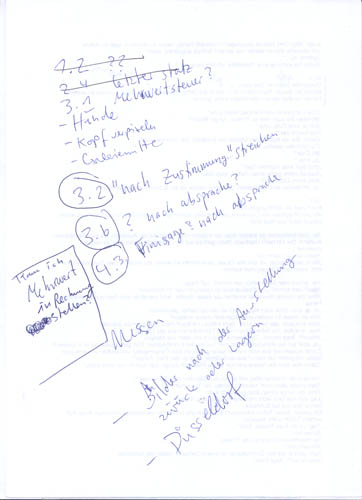 1.2 ??
2.4 letzter Satz
3.1 Mehrwertsteuer?
- Hände
- Kopf
-
3.2 "nach Zustimmung" streichen
3.b ? nach absprache?
4.3 Finissage? nach absprache
Muss ich
Mehrwert
in Rechnung
stellen?
Messen
- Bilder nach der Ausstellung
zurück oder lagern
- Düsseldorf